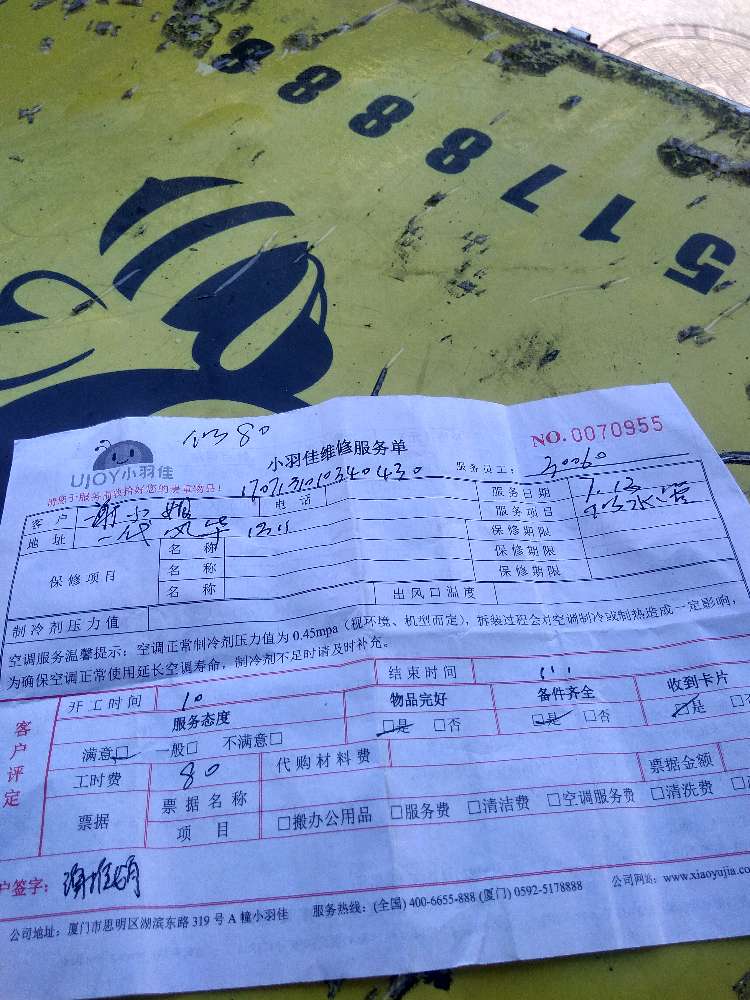 5178888
80
小羽佳维修服务单
NO. 0070955
UJOY小羽佳
服务员工: 30060
1707131010340430
客户 谢小姐 电话 服务日期 7.13
地址 一代风华 1311 服务项目 水管
保修项目 名称 保修期限
名称 保修期限
名称 保修期限
制冷剂压力值 出风口温度
空调服务温馨提示：空调正常制冷剂压力值为 0.45mpa（视环境、机型而定），拆装过程会对空调制冷或制热造成一定影响，
为确保空调正常使用延长空调寿命，制冷剂不足时请及时补充。
客户评定
开工时间 10 结束时间
服务态度 物品完好 备件齐全 收到卡片
满意□ 一般□ 不满意□ □是 □否 □是 □否 □是
工时费 80 代购材料费 票据金额
票据 票据名称
项目 □搬办公用品 □服务费 □清洁费 □空调服务费 □清洗费
户签字：
公司地址：厦门市思明区湖滨东路 319 号 A 幢小羽佳 服务热线：(全国) 400-6655-888 (厦门) 0592-5178888 公司网站：www.xiaoyujia.co